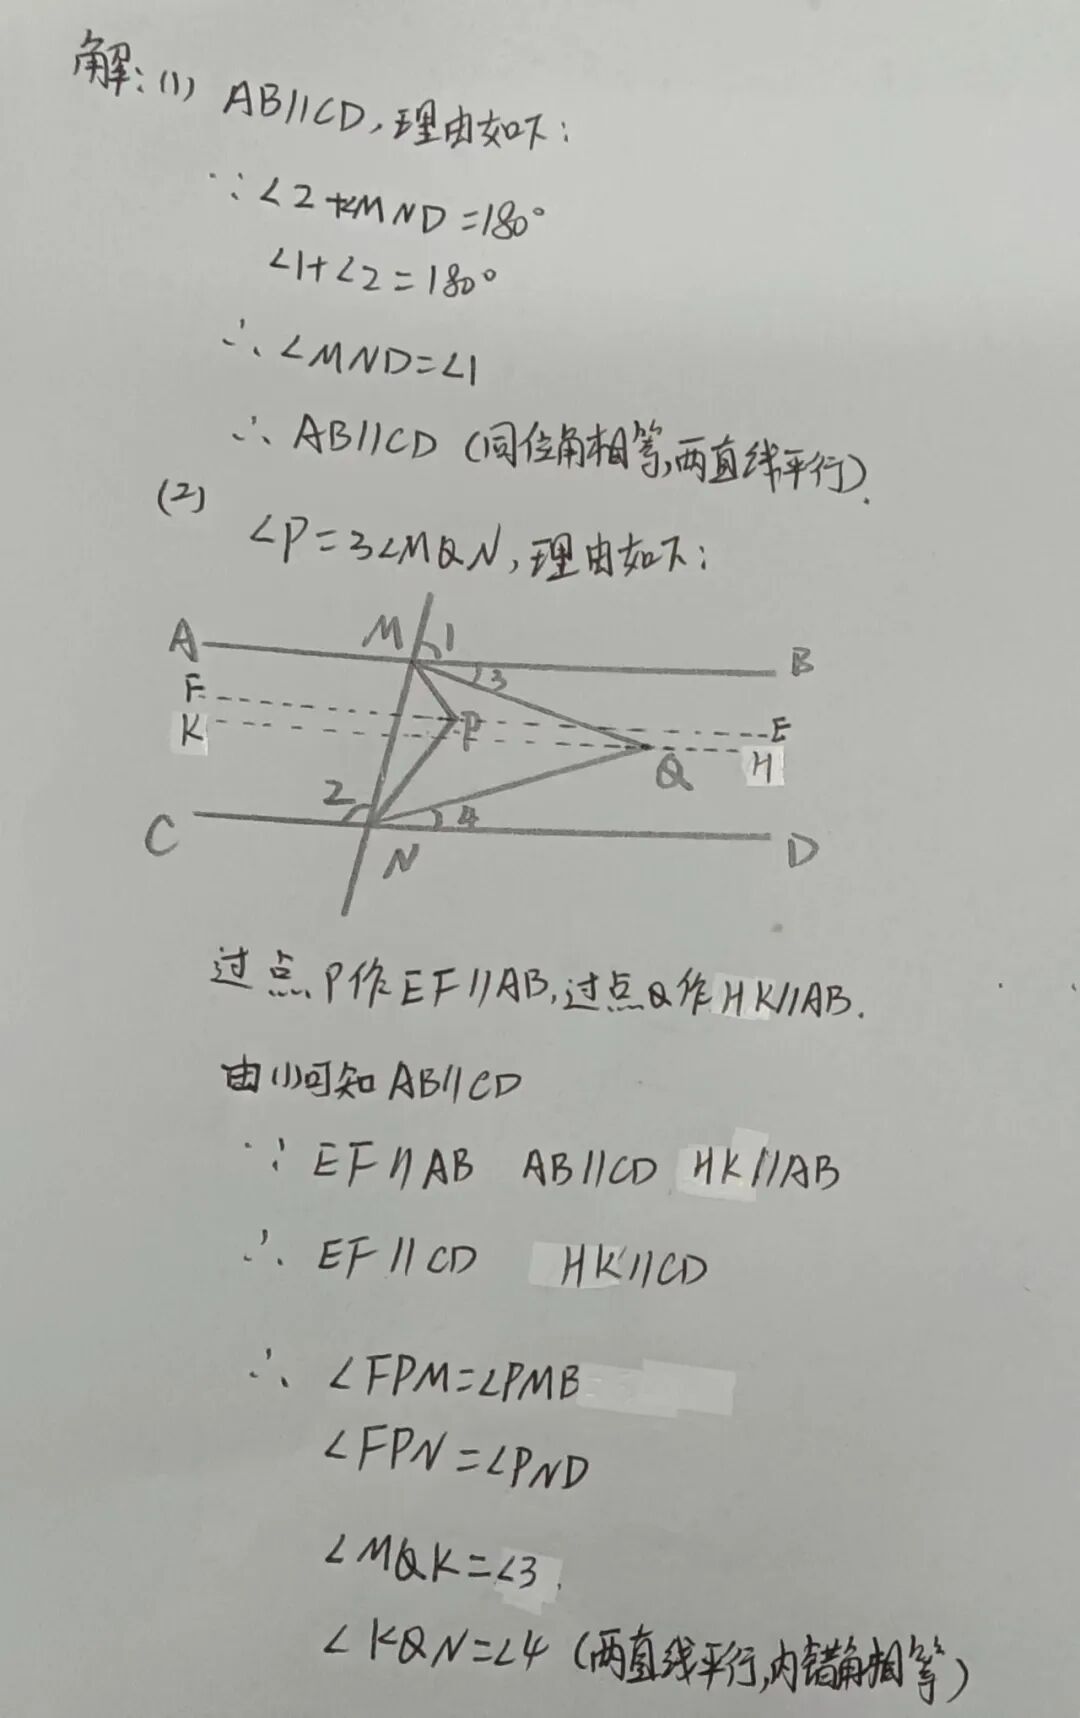 解:(1) AB//CD,理由如下:
∵∠2+∠MND=180°
∠1+∠2=180°
∴∠MND=∠1
∴AB//CD(同位角相等,两直线平行).
(2)
∠P=3∠MQN,理由如下:
A M 1 B
F 3
K P E
Q H
2 4
C N D
过点P作EF//AB,过点Q作HK//AB.
由(1)可知AB//CD
∵EF//AB AB//CD HK//AB
∴EF//CD HK//CD
∴∠FPM=∠PMB
∠FPN=∠PND
∠MQK=∠3
∠KQN=∠4(两直线平行,内错角相等)